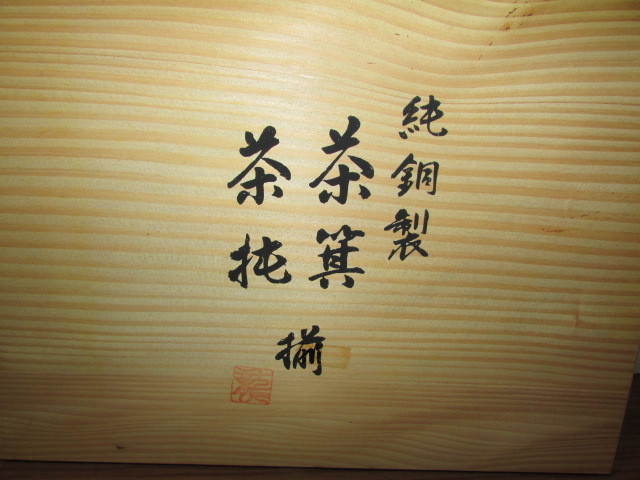 純銅製
茶箕
茶托
揃